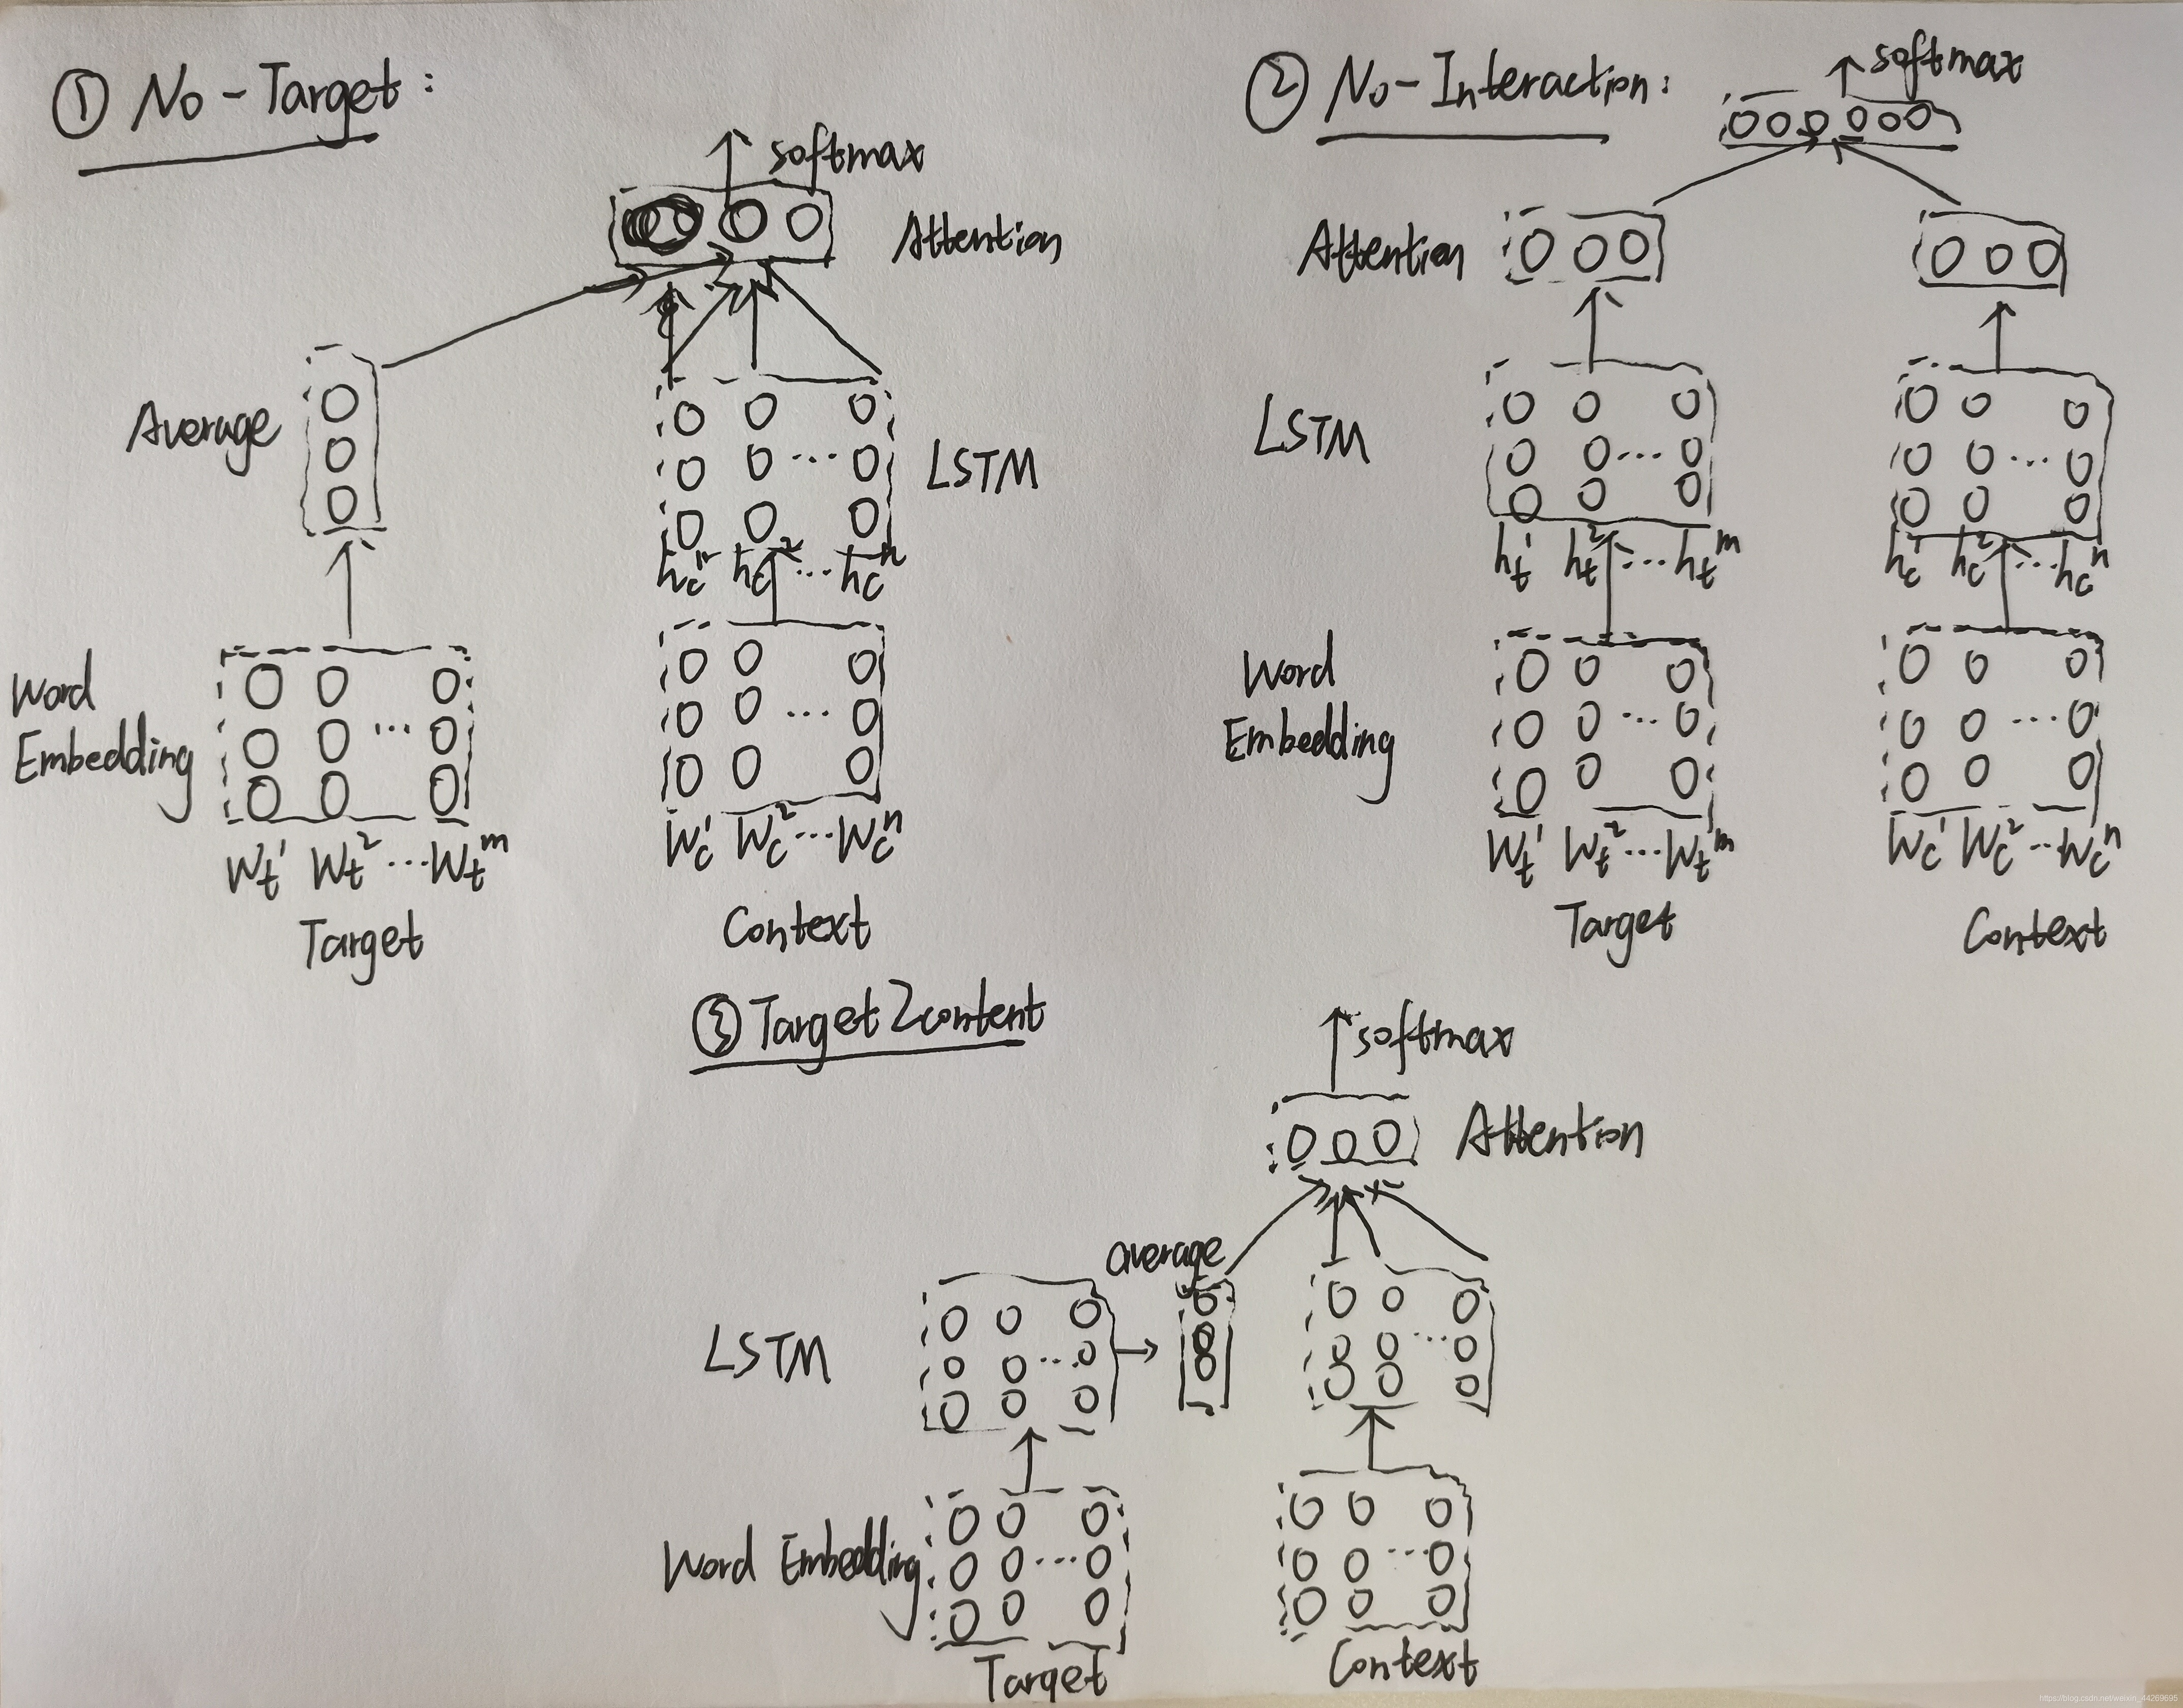 ① No-Target:
softmax
Attention
Average
LSTM
h_c^1 h_c^2 ... h_c^n
Word
Embedding
W_t^1 W_t^2 ... W_t^m
W_c^1 W_c^2 ... W_c^n
Target
Context
② No-Interaction:
softmax
Attention
LSTM
h_t^1 h_t^2 ... h_t^m
h_c^1 h_c^2 ... h_c^n
Word
Embedding
W_t^1 W_t^2 ... W_t^m
W_c^1 W_c^2 ... W_c^n
Target
Context
③ Target2content
softmax
Attention
average
LSTM
Word Embedding
Target
Context
https://blog.csdn.net/weixin_44269695